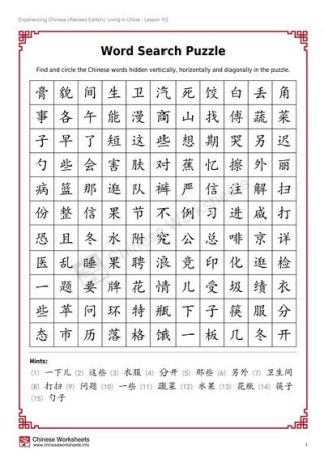 Experiencing Chinese (Revised Edition), Living in China - Lesson 1/2
Word Search Puzzle
Find and circle the Chinese words hidden vertically, horizontally and diagonally in the puzzle.
膏 貌 间 生 卫 汽 死 饺 白 丢 角
事 各 午 能 漫 商 山 找 傅 蔬 菜
子 早 了 短 这 些 想 期 哭 另 迟
勺 些 会 害 肤 对 蕉 忆 擦 外 丽
病 篮 那 逛 队 裤 严 信 注 解 扫
份 整 信 果 节 不 例 习 进 咸 打
恐 且 冬 水 附 究 公 总 啡 京 详
医 乱 睡 果 聘 浪 竞 印 化 逛 检
一 题 要 牌 花 情 儿 受 圾 绩 衣
些 苹 问 环 特 瓶 下 子 筷 服 分
态 市 历 落 格 饿 一 板 几 冬 开
Hints:
(1) 一下儿 (2) 这些 (3) 衣服 (4) 分开 (5) 那些 (6) 另外 (7) 卫生间
(8) 打扫 (9) 问题 (10) 一些 (11) 蔬菜 (12) 水果 (13) 花瓶 (14) 筷子
(15) 勺子
Chinese Worksheets
www.chineseworksheets.info
1